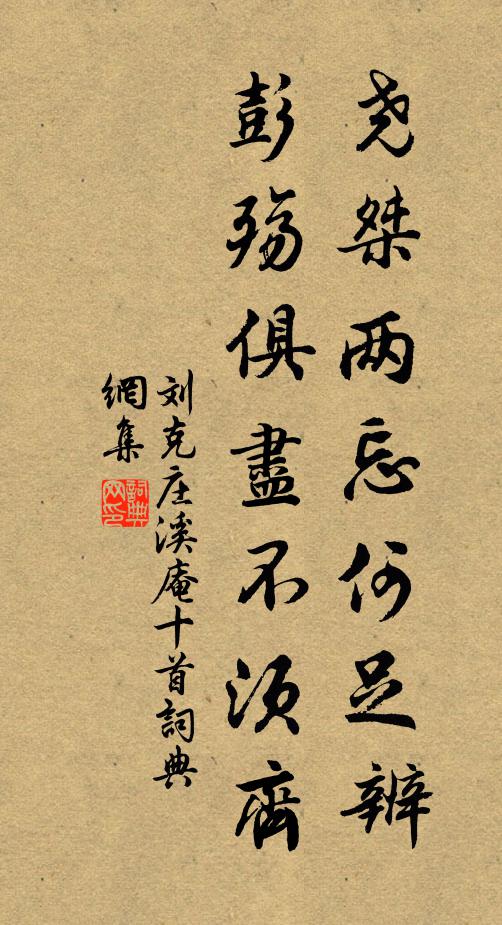 尧桀两忘何足辨
彭殇俱盡不须齊
刘克庄溪庵十首詞典
網集
詞典网印